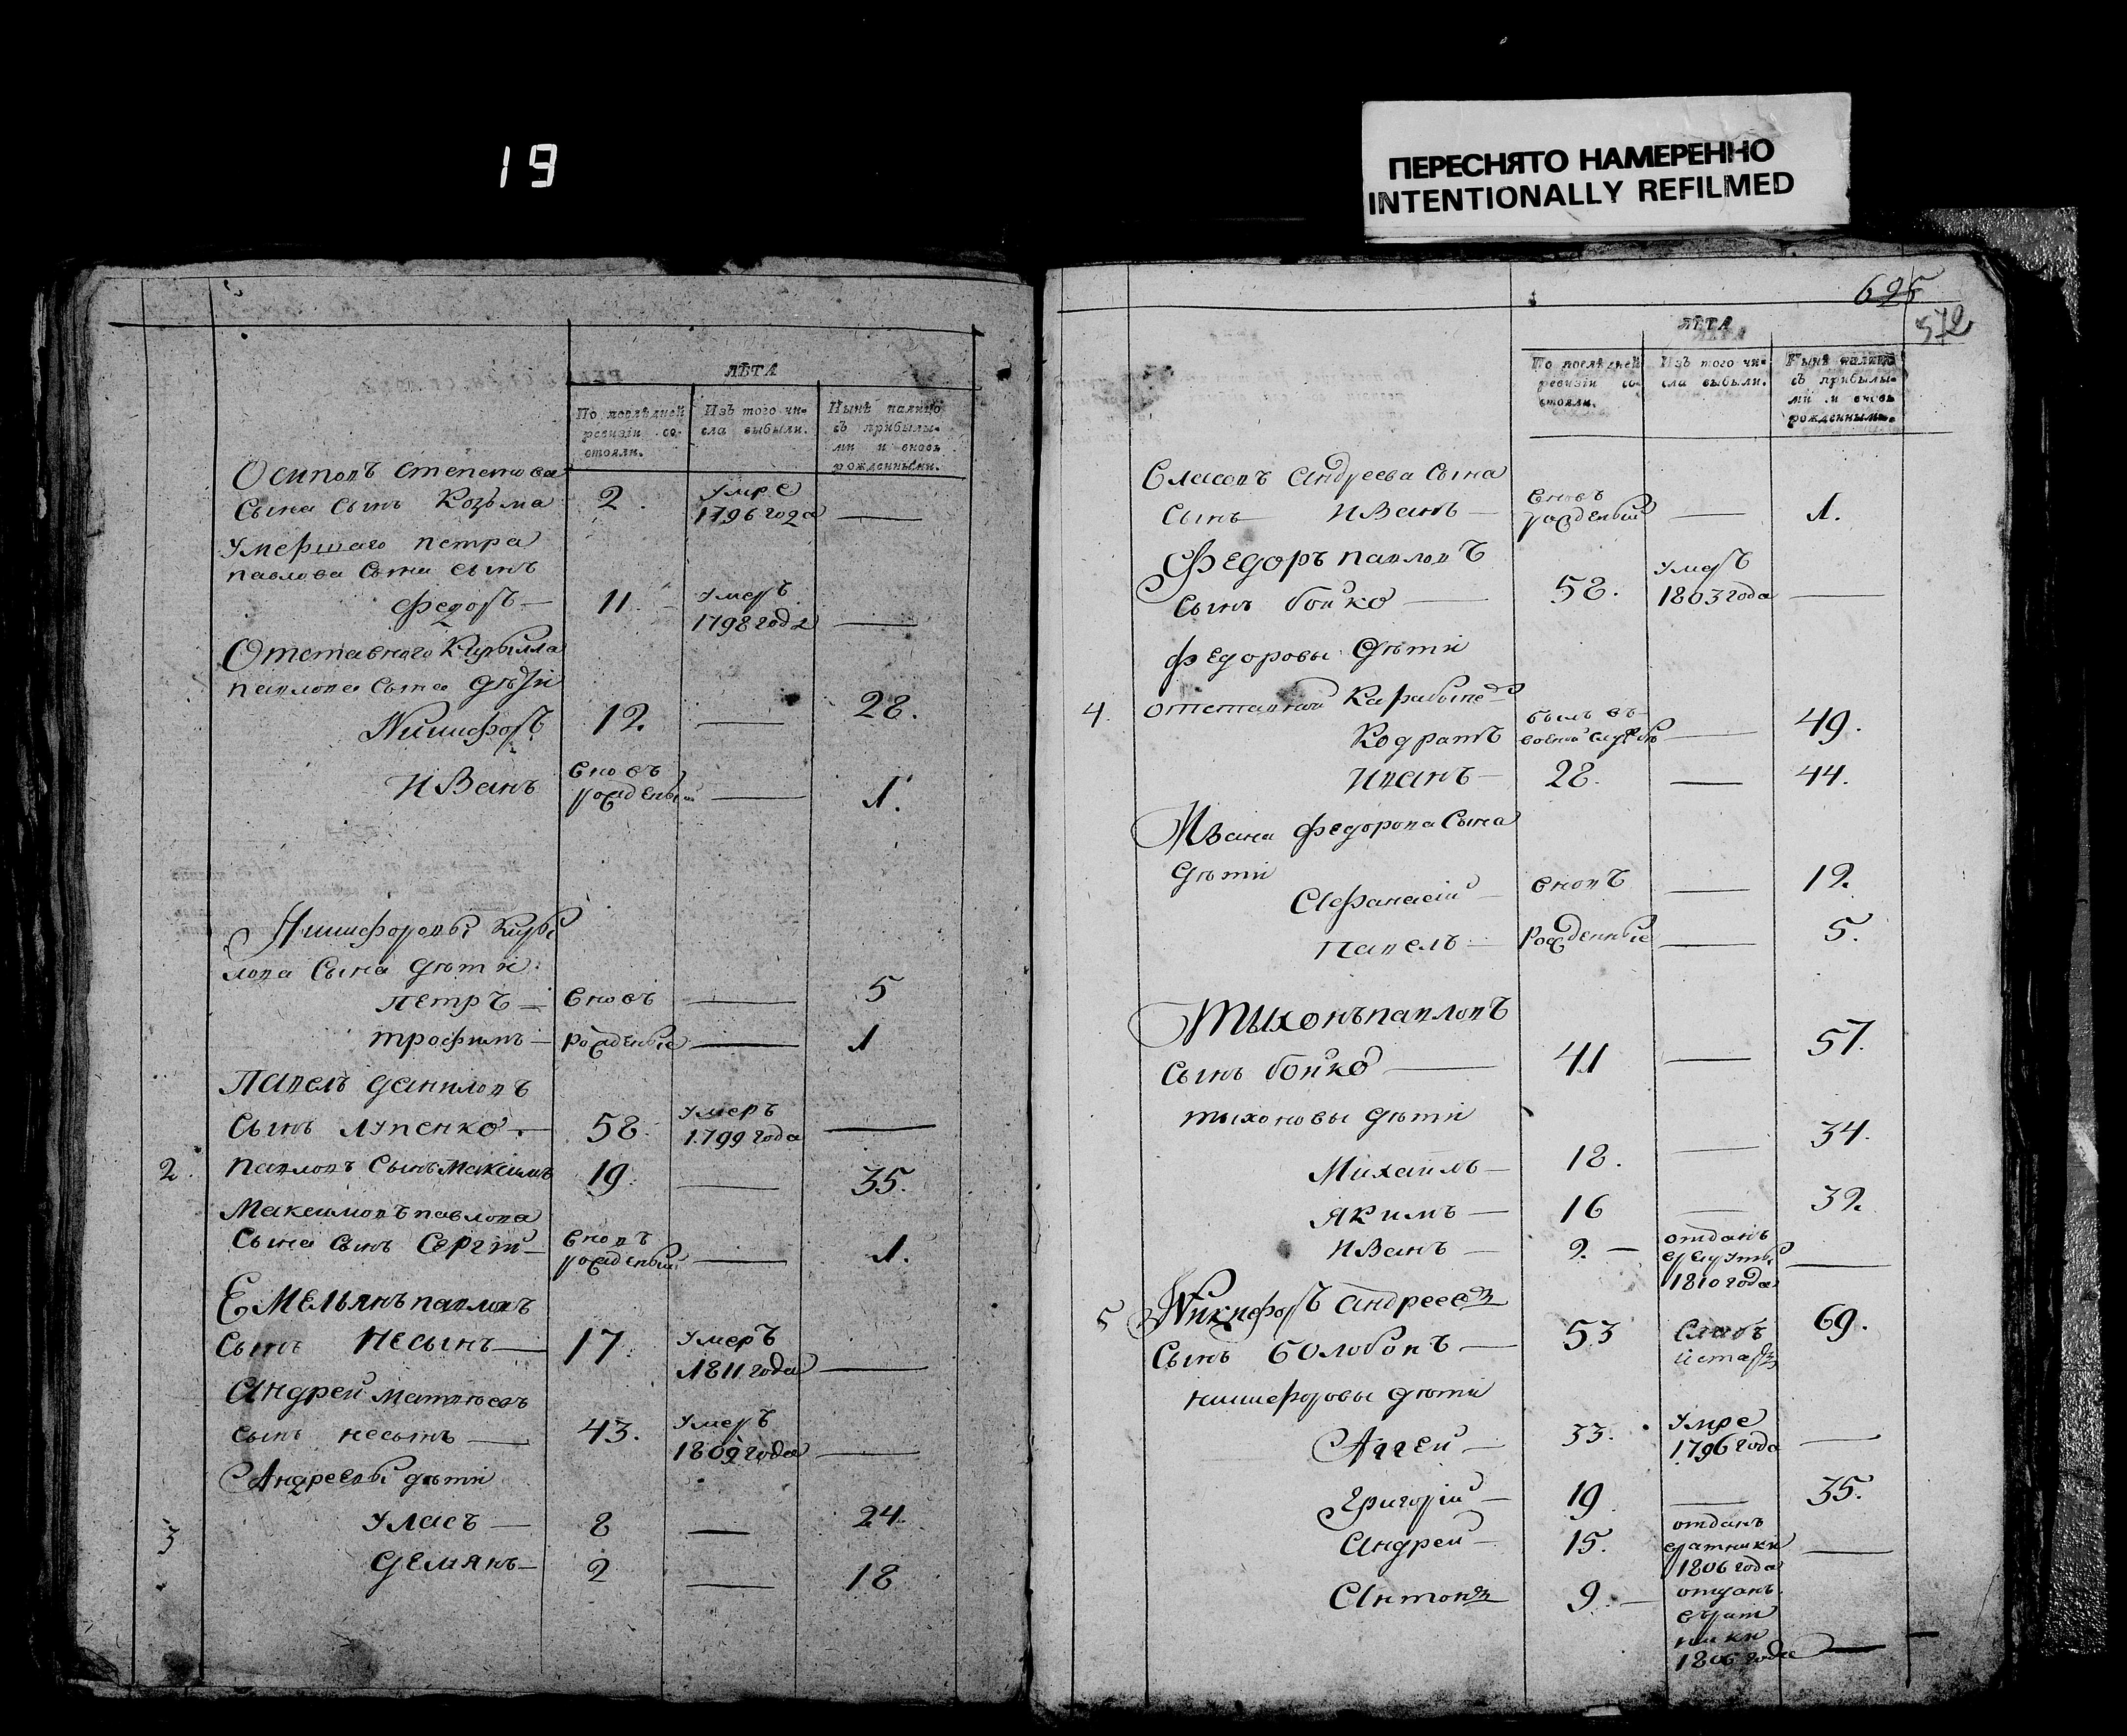 19
ПЕРЕСНЯТО НАМЕРЕННО
INTENTIONALLY REFILMED
ЛѢТА
По послѣдней ревизіи состояли.
Изъ того числа выбыли.
Нынѣ налицо съ прибылыми и вновь рожденными.
Осиповъ Степанова
сына сынъ Козьма 2. Умре 1796 года —
Умершаго Петра
павлова сына сынъ
Федоръ — 11. Умеръ 1798 года —
Отставного Кирылла
павлова сына дѣти
Никифоръ 12. — 28.
Иванъ вновь рожденый — 1.
Никифоровы Киры
лова сына дѣти
Петръ — вновь — 5
Трофимъ — рожденые — 1
Павелъ Даниловъ
сынъ Лупенко — 58. Умеръ 1799 года —
2. Павловъ сынъ Максимъ 19. — 35.
Максимовъ павлова
сына сынъ Сергій — вновь рожденый — 1.
Емельянъ павловъ
сынъ Несынъ — 17. Умеръ 1811 года —
Андрей Матвѣевъ
сынъ Несынъ — 43. Умеръ 1809 года —
Андреевы дѣти
3 Уласъ — 8 — 24.
Демянъ — 2 — 18
625
572
ЛѢТА
По послѣдней ревизіи состояли.
Изъ того числа выбыли.
Нынѣ налицо съ прибылыми и вновь рожденными.
Власовъ Андреева сына
сынъ Иванъ — вновь рожденый — 1.
Федоръ павловъ
сынъ бойко — 58. Умеръ 1803 года —
Федоровы дѣти
4. отставной
Кодратъ былъ въ военой службѣ — 49.
Иванъ — 28. — 44.
Ивана федорова сына
дѣти
Афанасій — вновь — 12.
Павелъ — рожденные — 5.
Тыхонъ павловъ
сынъ бойко — 41 — 57.
Тыхоновы дѣти
Михаилъ — 18. — 34.
Якимъ — 16 — 32.
Иванъ — 2. — отданъ 1810 года —
5 Никифоръ Андреевъ
сынъ Болобонъ — 53 Слабъ и старъ 69.
Никифоровы дѣти
Аггей — 33. Умре 1796 года —
Григорій — 19. — 35.
Андрей — 15. отданъ вратники 1806 года —
Антонъ 9. — отданъ вратники 1806 года —